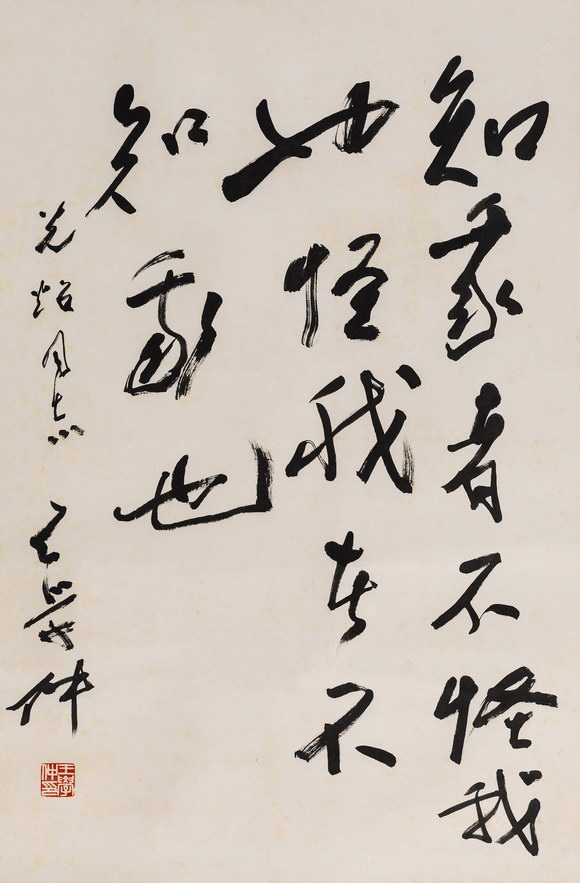 知我者不怪我
也怪我者不
知我也
光炤同志
王學仲
王學仲印